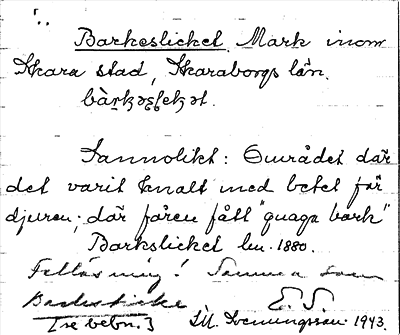 Barkeslicket. Mark inom
Skara stad, Skaraborgs län.
bàr̥kəʂlekət.
Sannolikt: Området där
det varit knalt med betet för
djuren; där fåren fått "gnaga bark"
Barkslicket len. 1880.
Felläsning! Samma som
Backesticke E. S.
[se bebn.] Lll. Svenungsson 1943.